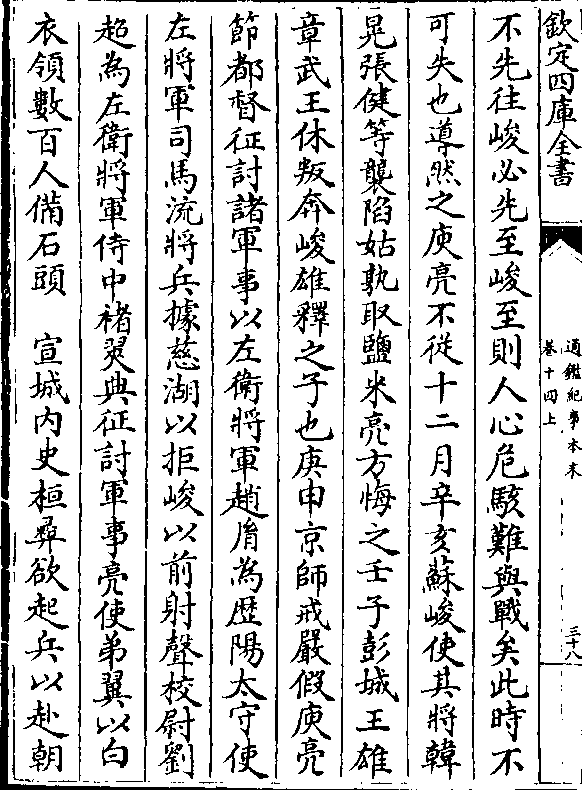 欽定四庫全書
通鑑紀事本末
卷十四上
三十八
不先往峻必先至峻至則人心危駭難與戰矣此時不
可失也導然之庾亮不從十二月辛亥蘇峻使其將韓
晃張健等襲陷姑孰取鹽米亮方悔之壬子彭城王雄
章武王休叛奔峻雄釋之子也庚申京師戒嚴假庾亮
節都督征討諸軍事以左衛將軍趙𦙍為歴陽太守使
左將軍司馬流將兵據慈湖以拒峻以前射聲校尉劉
超為左衛將軍侍中褚翜典征討軍事亮使弟翼以白
衣領數百人備石頭　宣城内史桓彛欲起兵以赴朝